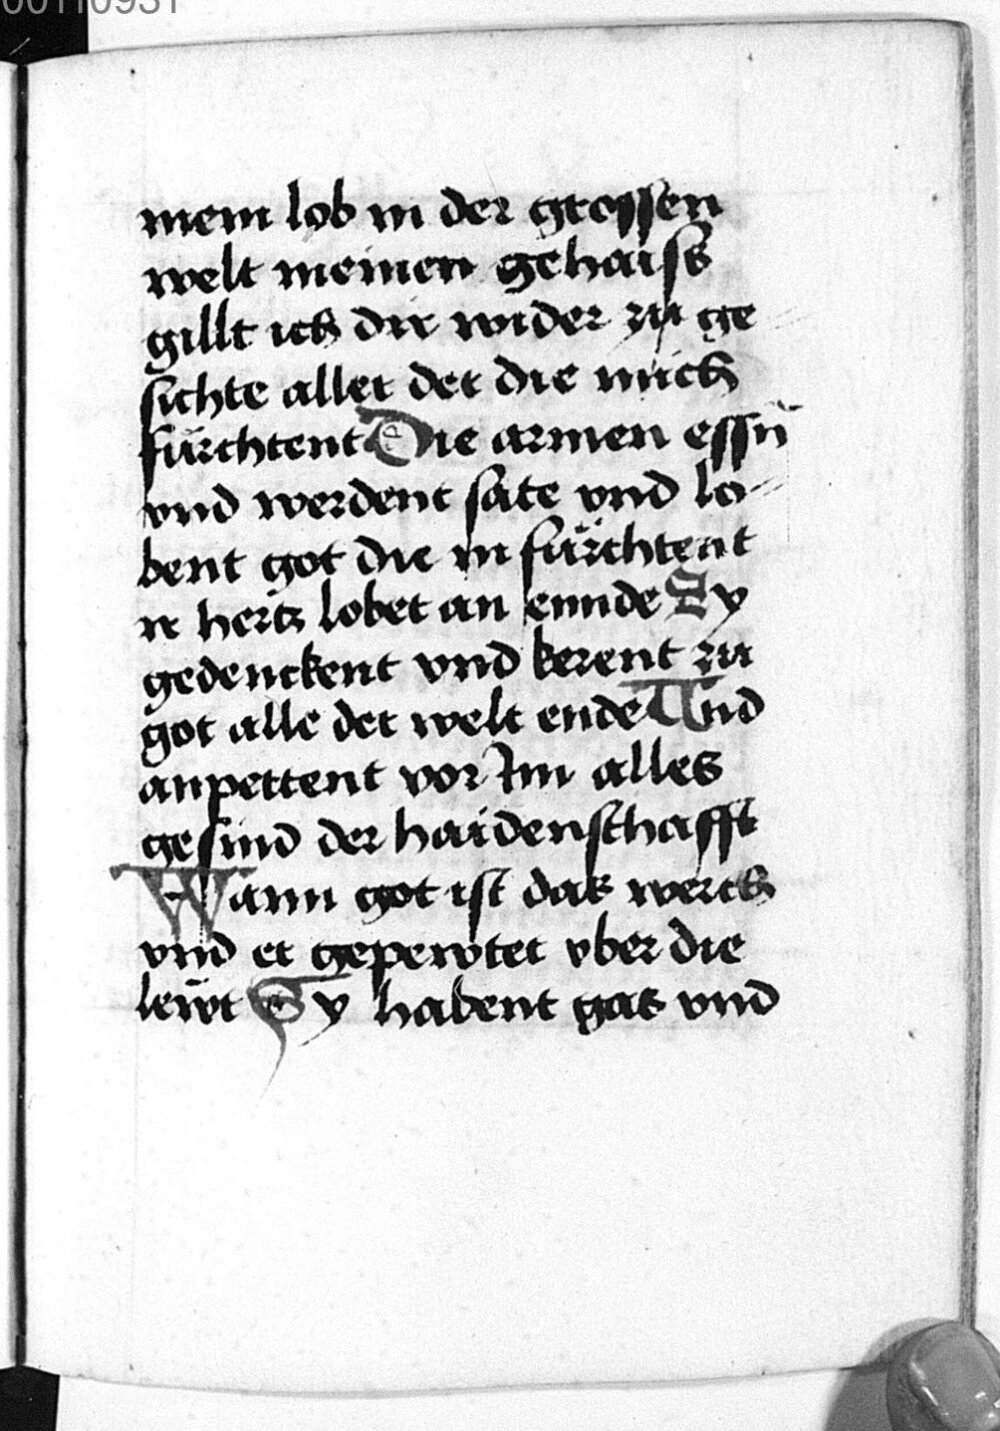 00110931
mein lob in der grossen
welt meinen gehaiss
gillt ich dir wider zu ge
sichte aller der die mich
fürchtent Die armen essn̄
vnd werdent sate vnd lo-
bent got die in fürchtent
ir hertz lobet an ennde Sy
gedenckent vnd kerent zu
got alle der welt ende Und
anpettent vor Im alles
gesind der haidenschafft
Wann got ist das werch
vnd er gepewtet vber die
lewt Sy habent gas vnd